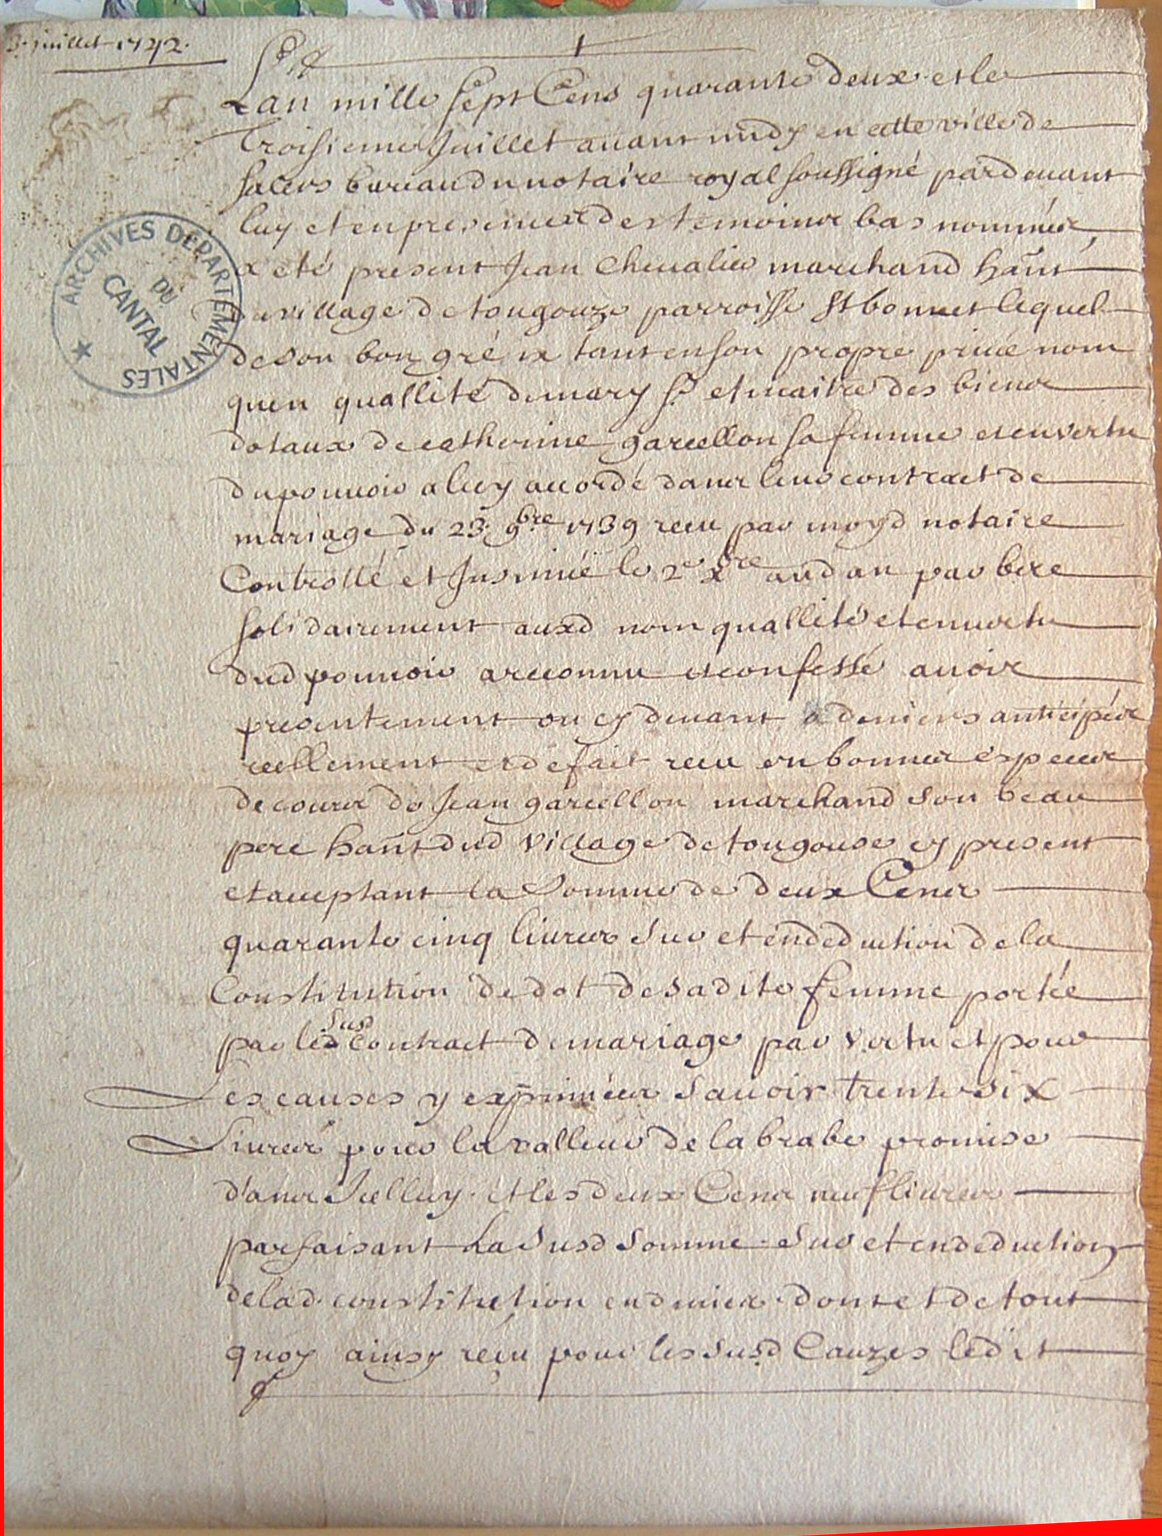 3. juillet 1742.
Lan mille sept Cens quarante deux et le
Troisieme Juillet avant midy en cette ville de
salers bureau du notaire royal soussigné pardevant
luy et en presence des temoins bas nommés
a eté present Jean Chevalier marchand hant
du village de tougouze parroisse St bonnet lequel
de son bon gré tant en son propre privé nom
quen quallité de mary sr. et maitre des biens
dotaux de catherine garcellon sa femme et en vertu
du pouvoir a luy accordé dans leur contract de
mariage du 23. 9bre 1739 receu par moyd notaire
Controllé et Insinué le 2e xbre aud an par
solidairement auxd nom quallité et en vertu
dud pouvoir a reconnu et confessé avoir
presentement ou cy devant a deniers anticipés
reellement et de fait receu en bonnes especes
de cours de Jean garcellon marchand son beau
pere hant dud village de tougouse cy present
et acceptant la somme de deux Cens
quarante cinq livres sur et en deduction de la
Constitution de dot de sa dite femme portée
par led susd Contract de mariage par vertu et pour
Les causes y exprimées savoir trente six
Livres pour la valleur de la brabe promise
dans Icelluy. et les deux Cens neuf livres
parfaisant La susd somme sur et en deduction
de lad. constitution en deniers dont et de tout
quoy ainsy reçu pour les susd Cauzes ledit
ARCHIVES DEPARTEMENTALES
DU
CANTAL